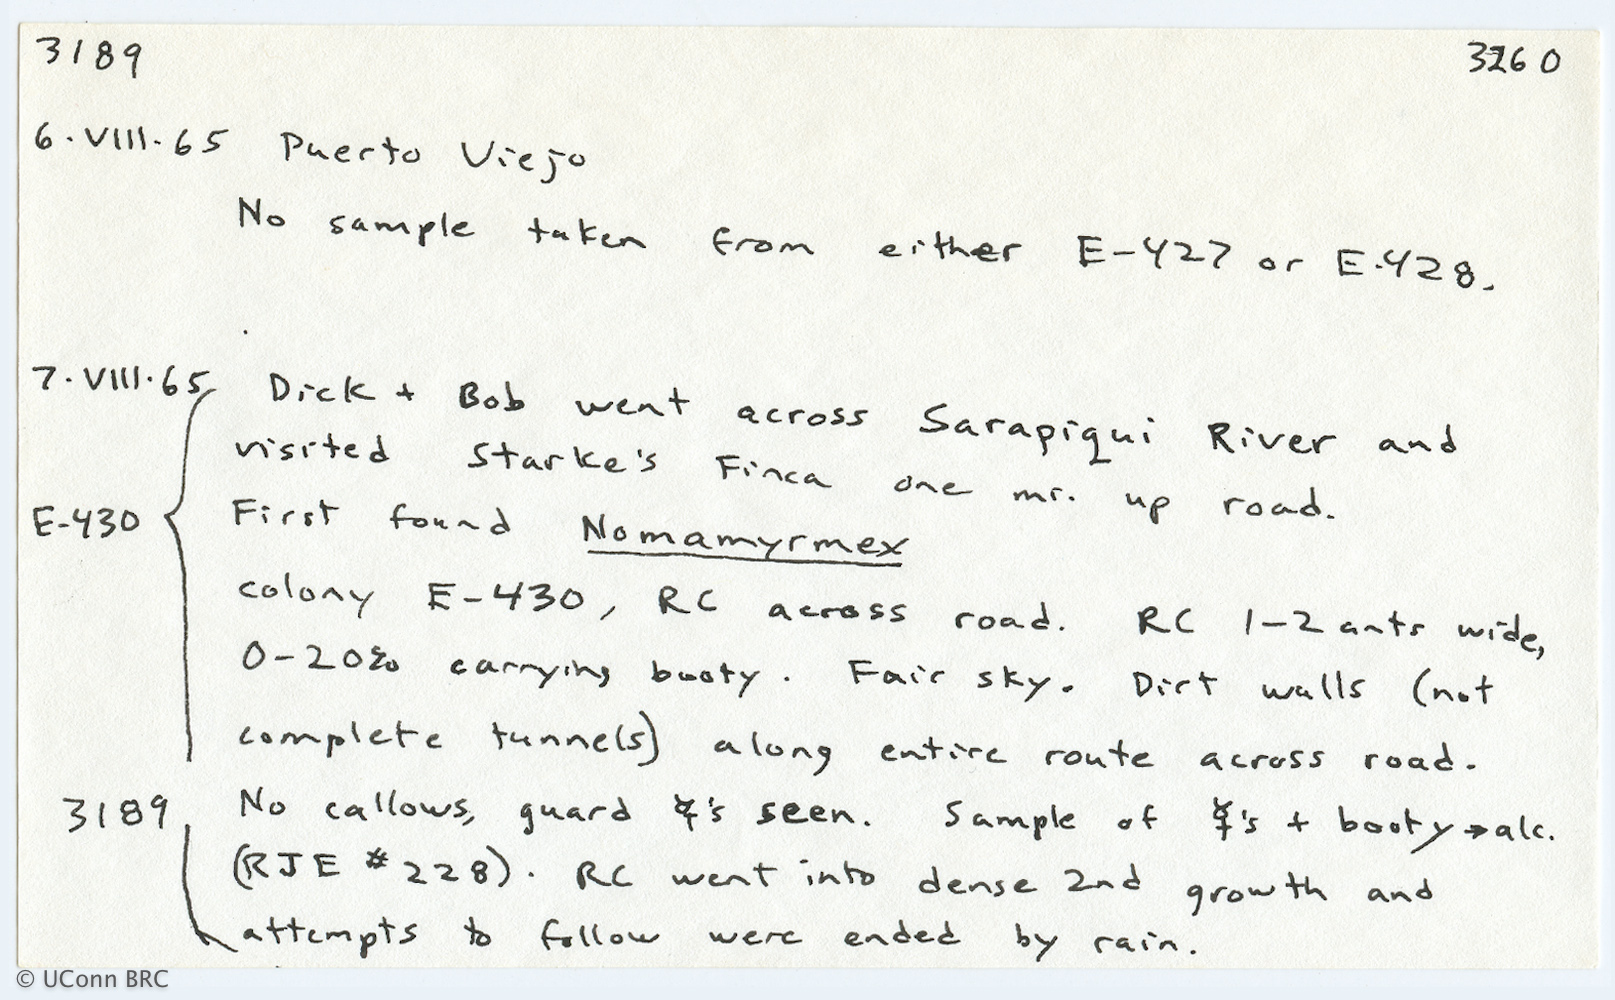 3189 3260
6·VIII·65 Puerto Viejo
No sample taken from either E-427 or E-428.
7·VIII·65 Dick + Bob went across Sarapiqui River and
visited Starke's Finca one mi. up road.
E-430 First found Nomamyrmex
colony E-430, RC across road. RC 1-2 ants wide,
0-20% carrying booty. Fair sky. Dirt walls (not
complete tunnels) along entire route across road.
3189 No callows, guard ☿'s seen. Sample of ☿'s + booty → alc.
(RJE #228). RC went into dense 2nd growth and
attempts to follow were ended by rain.
© UConn BRC